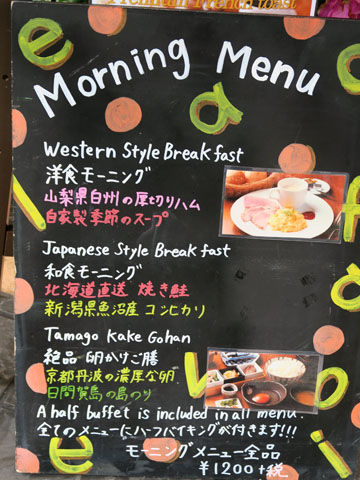 French toast
Morning Menu
Western Style Breakfast
洋食モーニング
山梨県白州の厚切りハム
自家製季節のスープ
Japanese Style Breakfast
和食モーニング
北海道直送 焼き鮭
新潟県魚沼産 コシヒカリ
Tamago Kake Gohan
絶品 卵かけご膳
京都丹波の濃厚な卵
日間賀島の島のり
A half buffet is included in all menu.
全てのメニューにハーフバイキングが付きます!!!
モーニングメニュー全品
¥1200+税